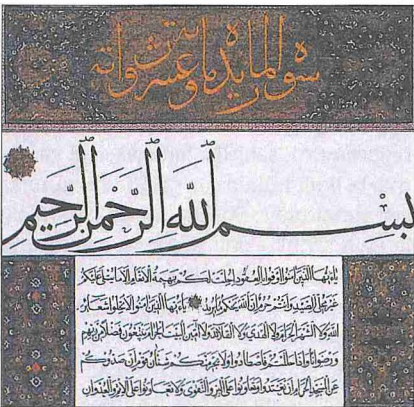 سورة المائدة مائة وعشرون آية
بسم الله الرحمن الرحيم
يا أيها الذين آمنوا أوفوا بالعقود أحلت لكم بهيمة الأنعام إلا ما يتلى عليكم
غير محلي الصيد وأنتم حرم إن الله يحكم ما يريد يا أيها الذين آمنوا لا تحلوا شعائر
الله ولا الشهر الحرام ولا الهدي ولا القلائد ولا آمين البيت الحرام يبتغون فضلا من ربهم
ورضوانا وإذا حللتم فاصطادوا ولا يجرمنكم شنآن قوم أن صدوكم
عن المسجد الحرام أن تعتدوا وتعاونوا على البر والتقوى ولا تعاونوا على الإثم والعدوان